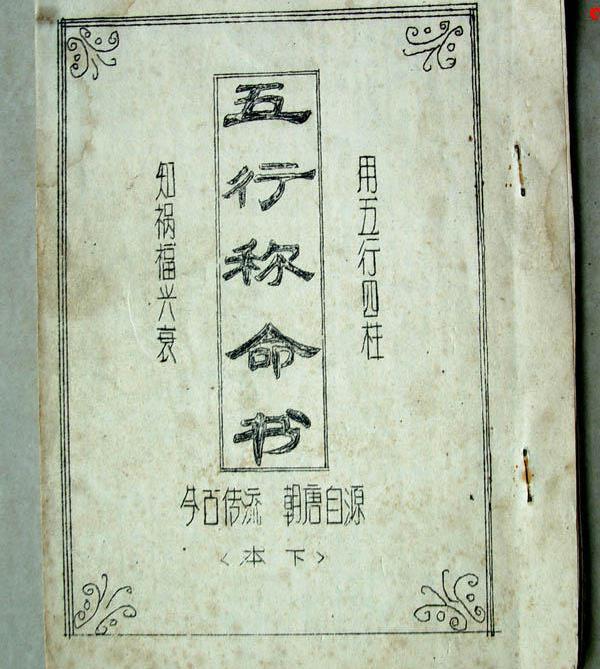 用五行四柱
五行称命书
知祸福兴衰
源自唐朝 流传古今
〈下本〉